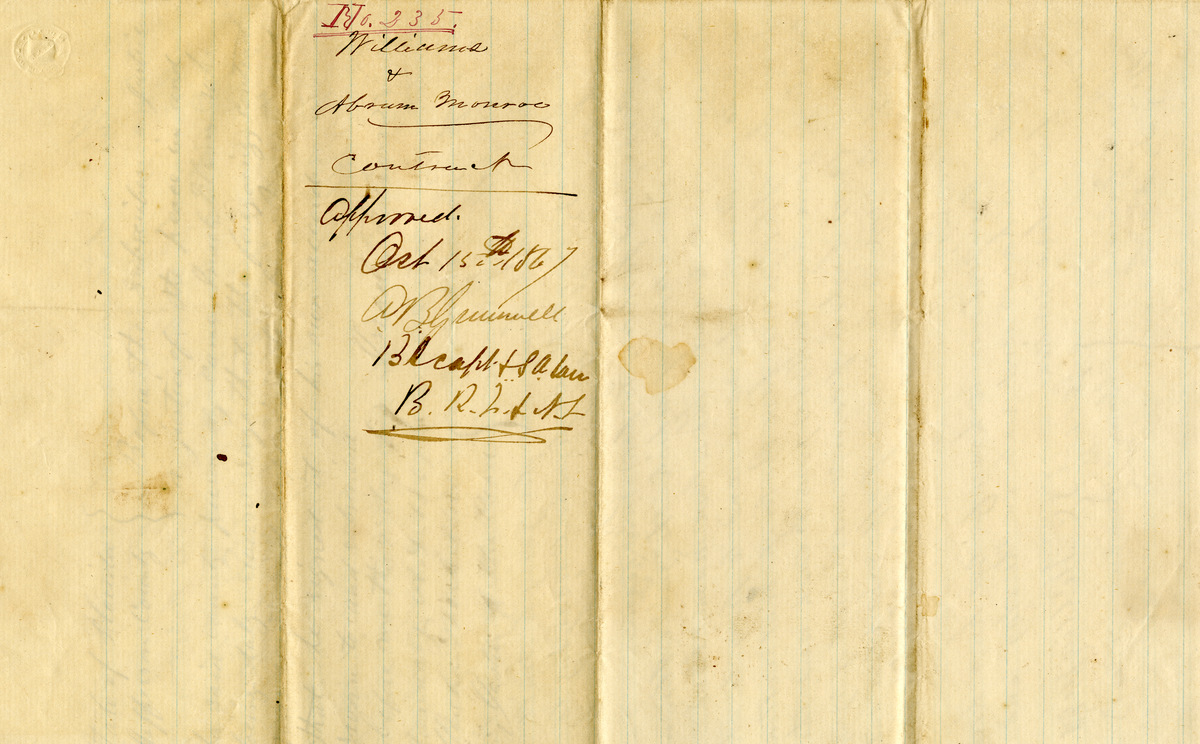 No. 235.
Williams
&
Abram Monroe
Contract
Approved.
Oct 15th 1867
A B Grunwell
Bt Capt &
B. R. F. & A. L